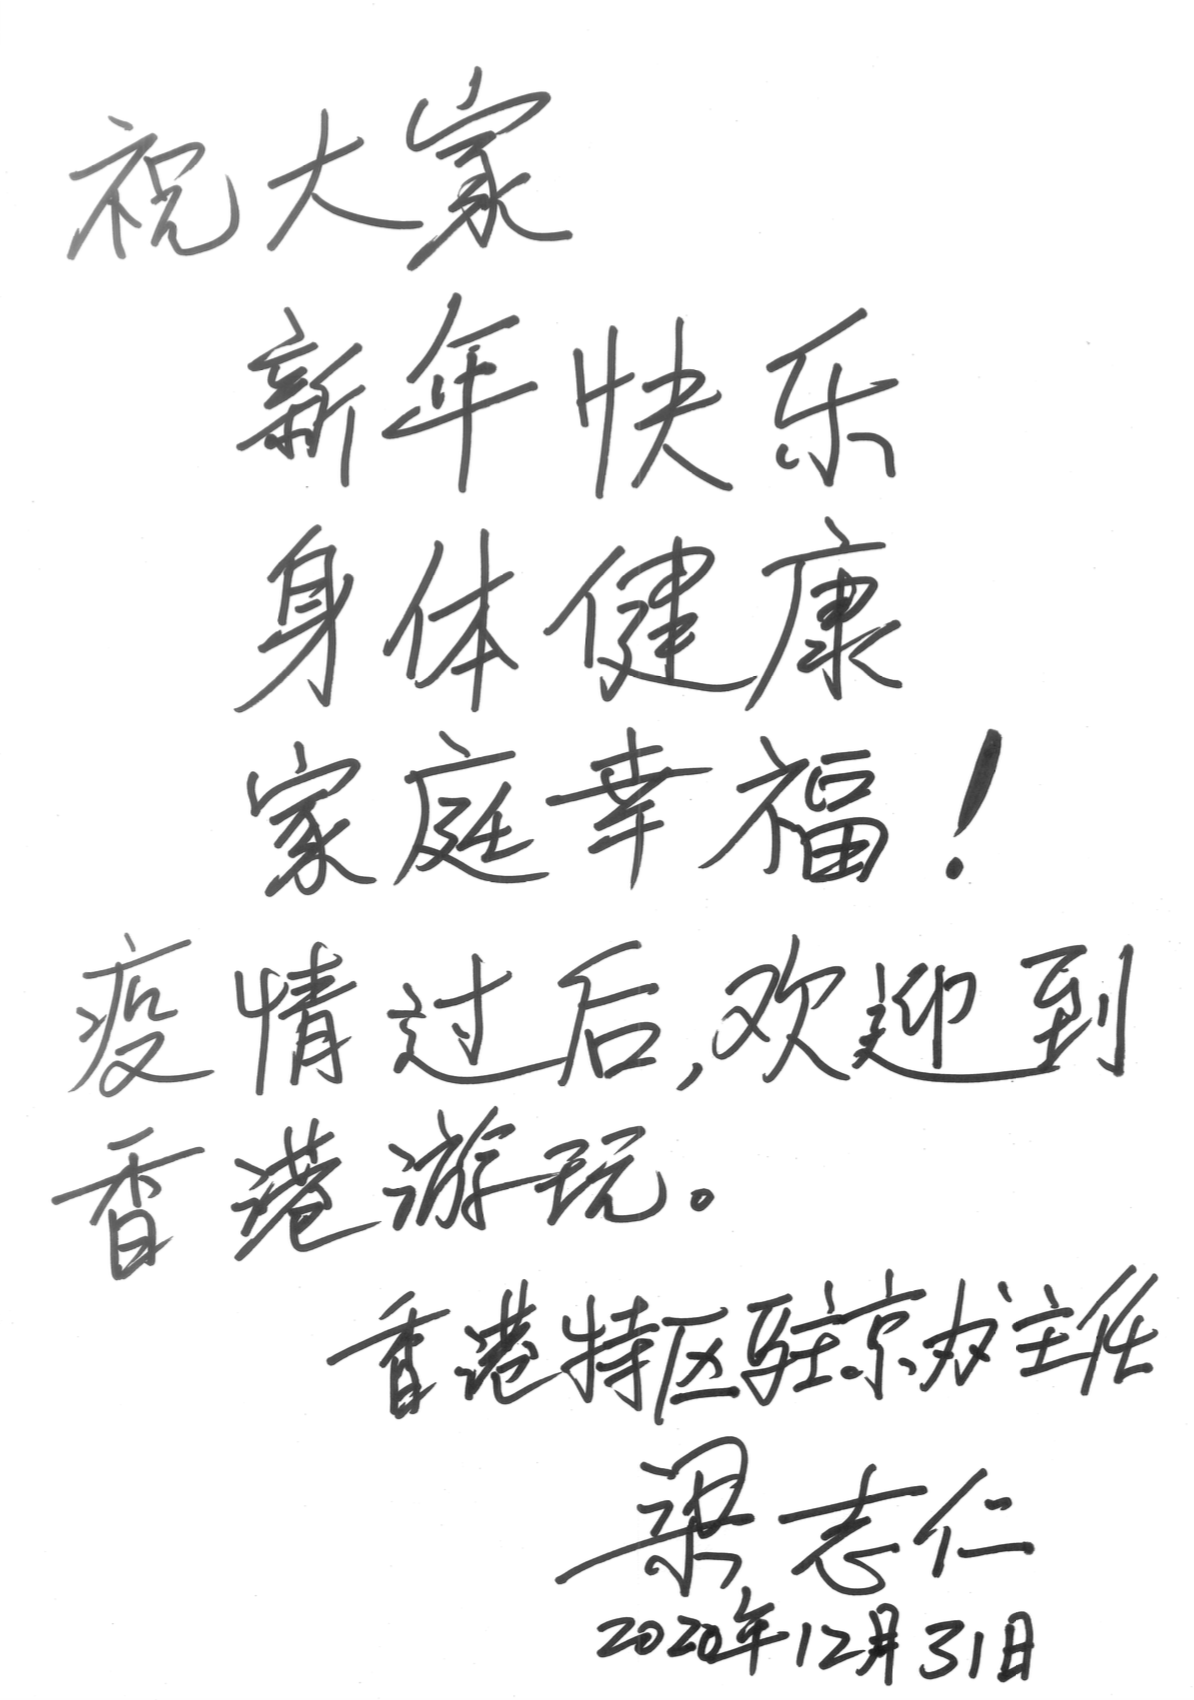 祝大家
新年快乐
身体健康
家庭幸福！
疫情过后,欢迎到
香港游玩。
香港特区驻京办主任
梁志仁
2020年12月31日